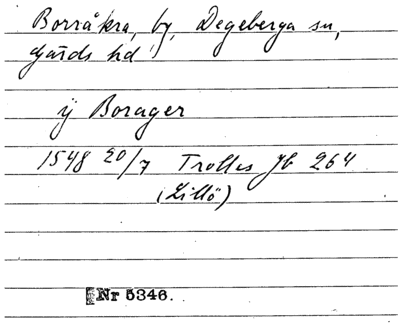 Borråkra, by, Degeberga sn,
Gärds hd
ÿ Borager
1548 20/7 Trolles Jb 264
(Lillö)
Nr 5346.